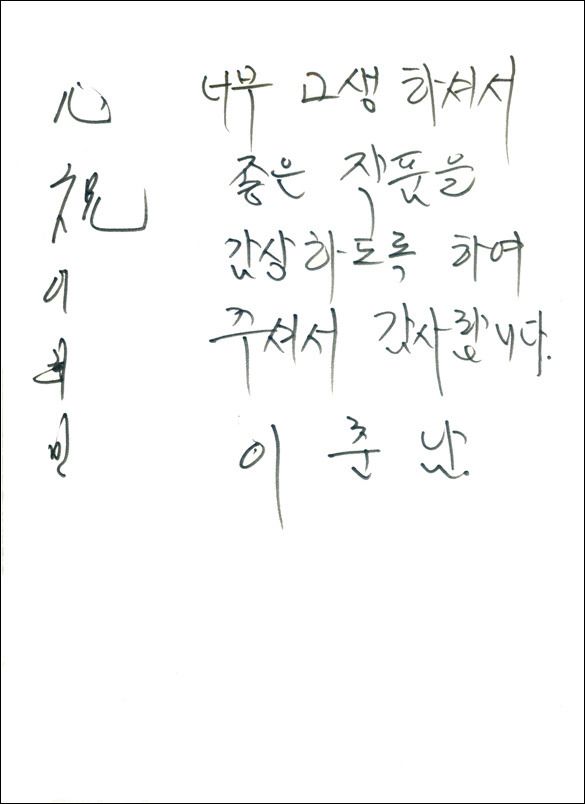 心祝
이
민
너무 고생 하셔서
좋은 작품을
감상하도록 하여
주셔서 감사합니다.
이 춘 남